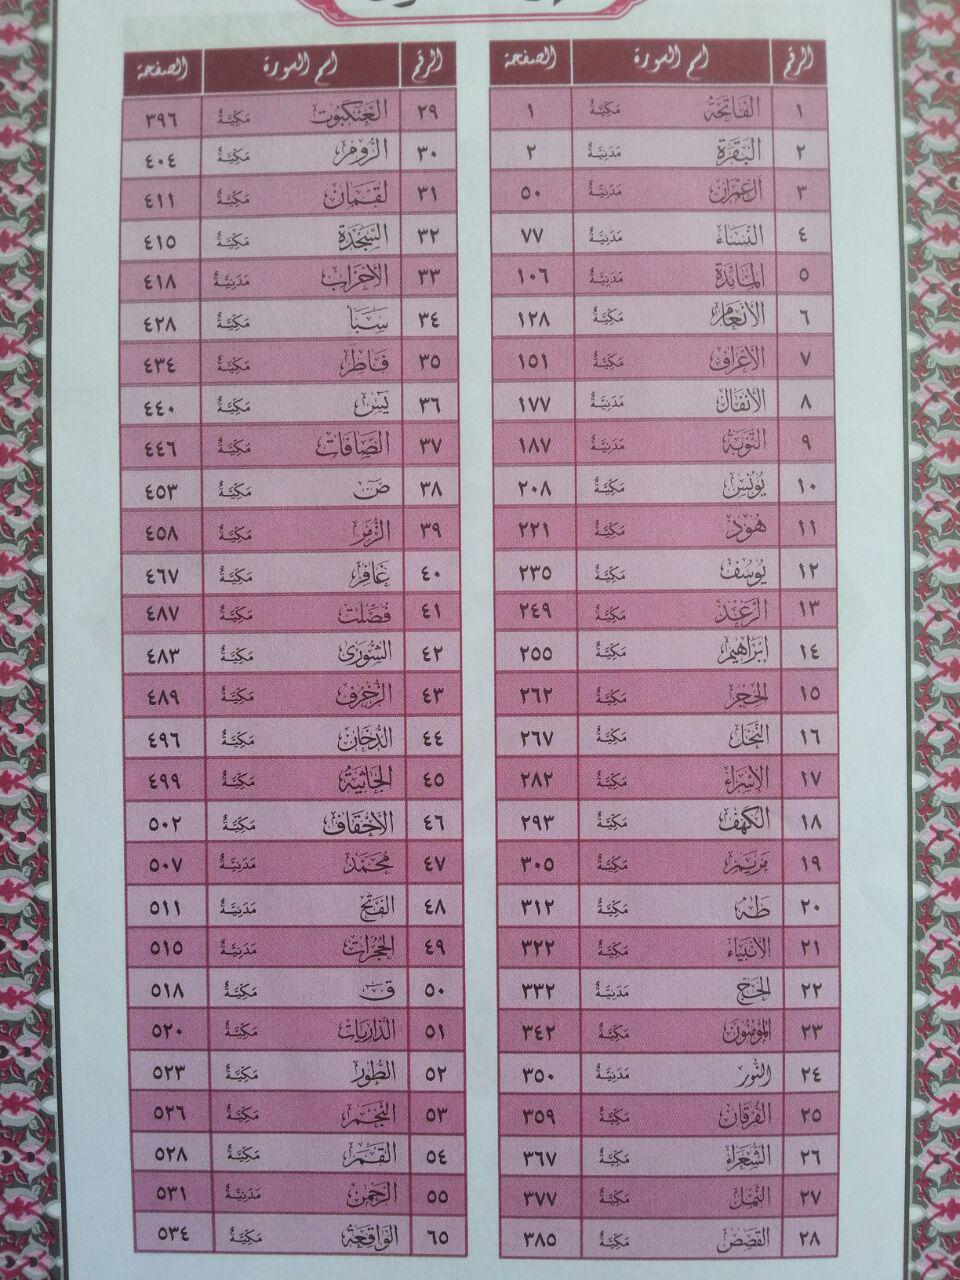 الرقم اسم السورة الصفحة
١ الفَاتِحَة مَكِيَّةٌ ١
٢ البَقَرَة مَدَنِيَّةٌ ٢
٣ آل عِمْرَان مَدَنِيَّةٌ ٥٠
٤ النِّسَاء مَدَنِيَّةٌ ٧٧
٥ المَائِدَة مَدَنِيَّةٌ ١٠٦
٦ الأَنْعَام مَكِيَّةٌ ١٢٨
٧ الأَعْرَاف مَكِيَّةٌ ١٥١
٨ الأَنْفَال مَدَنِيَّةٌ ١٧٧
٩ التَّوْبَة مَدَنِيَّةٌ ١٨٧
١٠ يُونُس مَكِيَّةٌ ٢٠٨
١١ هُود مَكِيَّةٌ ٢٢١
١٢ يُوسُف مَكِيَّةٌ ٢٣٥
١٣ الرَّعْد مَكِيَّةٌ ٢٤٩
١٤ إبْرَاهِيم مَكِيَّةٌ ٢٥٥
١٥ الحِجْر مَكِيَّةٌ ٢٦٢
١٦ النَّحْل مَكِيَّةٌ ٢٦٧
١٧ الإِسْرَاء مَكِيَّةٌ ٢٨٢
١٨ الكَهْف مَكِيَّةٌ ٢٩٣
١٩ مَرْيَم مَكِيَّةٌ ٣٠٥
٢٠ طَهَ مَكِيَّةٌ ٣١٢
٢١ الأَنْبِيَاء مَكِيَّةٌ ٣٢٢
٢٢ الحَجّ مَدَنِيَّةٌ ٣٣٢
٢٣ المُؤْمِنُون مَكِيَّةٌ ٣٤٢
٢٤ النُّور مَدَنِيَّةٌ ٣٥٠
٢٥ الفُرْقَان مَكِيَّةٌ ٣٥٩
٢٦ الشُّعَرَاء مَكِيَّةٌ ٣٦٧
٢٧ النَّمْل مَكِيَّةٌ ٣٧٧
٢٨ القَصَص مَكِيَّةٌ ٣٨٥
الرقم اسم السورة الصفحة
٢٩ العَنْكَبُوت مَكِيَّةٌ ٣٩٦
٣٠ الرُّوم مَكِيَّةٌ ٤٠٤
٣١ لُقْمَان مَكِيَّةٌ ٤١١
٣٢ السَّجْدَة مَكِيَّةٌ ٤١٥
٣٣ الأَحْزَاب مَدَنِيَّةٌ ٤١٨
٣٤ سَبَأ مَكِيَّةٌ ٤٢٨
٣٥ فَاطِر مَكِيَّةٌ ٤٣٤
٣٦ يَس مَكِيَّةٌ ٤٤٠
٣٧ الصَّافَات مَكِيَّةٌ ٤٤٦
٣٨ صَ مَكِيَّةٌ ٤٥٣
٣٩ الزُّمَر مَكِيَّةٌ ٤٥٨
٤٠ غَافِر مَكِيَّةٌ ٤٦٧
٤١ فُصِّلَت مَكِيَّةٌ ٤٨٧
٤٢ الشُّورَى مَكِيَّةٌ ٤٨٣
٤٣ الزُّخْرُف مَكِيَّةٌ ٤٨٩
٤٤ الدُّخَان مَكِيَّةٌ ٤٩٦
٤٥ الجَاثِيَة مَكِيَّةٌ ٤٩٩
٤٦ الأَحْقَاف مَكِيَّةٌ ٥٠٢
٤٧ مُحَمَّد مَدَنِيَّةٌ ٥٠٧
٤٨ الفَتْح مَدَنِيَّةٌ ٥١١
٤٩ الحُجُرَات مَدَنِيَّةٌ ٥١٥
٥٠ ق مَكِيَّةٌ ٥١٨
٥١ الذَّارِيَات مَكِيَّةٌ ٥٢٠
٥٢ الطُّور مَكِيَّةٌ ٥٢٣
٥٣ النَّجْم مَكِيَّةٌ ٥٢٦
٥٤ القَمَر مَكِيَّةٌ ٥٢٨
٥٥ الرَّحْمن مَدَنِيَّةٌ ٥٣١
٦٥ الوَاقِعَة مَكِيَّةٌ ٥٣٤